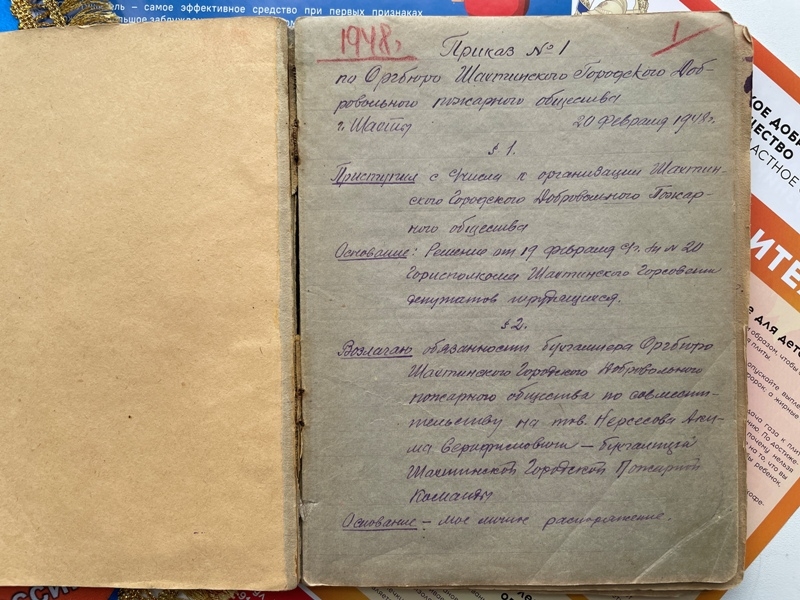 самое эффективное средство при первых признаках
1948г
1
Приказ № 1
по Оргбюро Шахтинского Городского Доб-
ровольного пожарного общества
г. Шахты 20 февраля 1948г.
§ 1.
Приступил с числа к организации Шахтин-
ского Городского Добровольного Пожар-
ного общества
Основание: Решение от 19 февраля № 20
Горисполкома Шахтинского Горсовета
депутатов трудящихся.
§ 2.
Возлагаю обязанности бухгалтера Оргбюро
Шахтинского Городского Добровольного
пожарного общества по совмести-
тельству на тов. Нерсесова Аки-
ма – бухгалтера
Шахтинской Городской Пожарной
Команды
Основание – мое личное распоряжение.
КОЕ ДОБР
ЧЕСТВО
АСТНОЕ
ИТЕЛ
для дет